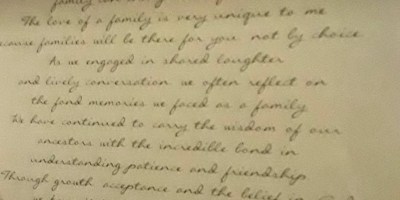 The love of a family is very unique to me
because families will be there for you not by choice
As we engaged in shared laughter
and lively conversation we often reflect on
the fond memories we faced as a family
We have continued to carry the wisdom of our
ancestors with the incredible bond in
understanding patience and friendship
Through growth acceptance and the belief in